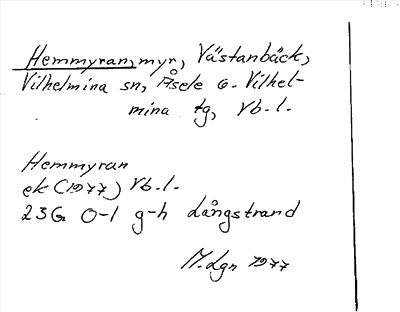 Hemmyran, myr, Västanbäck,
Vilhelmina sn, Åsele o. Vilhel-
mina tg, Vb. l.
Hemmyran
ek (1977) Vb. l.
23G 0-1 g-h Långstrand
M. Lgn 1977